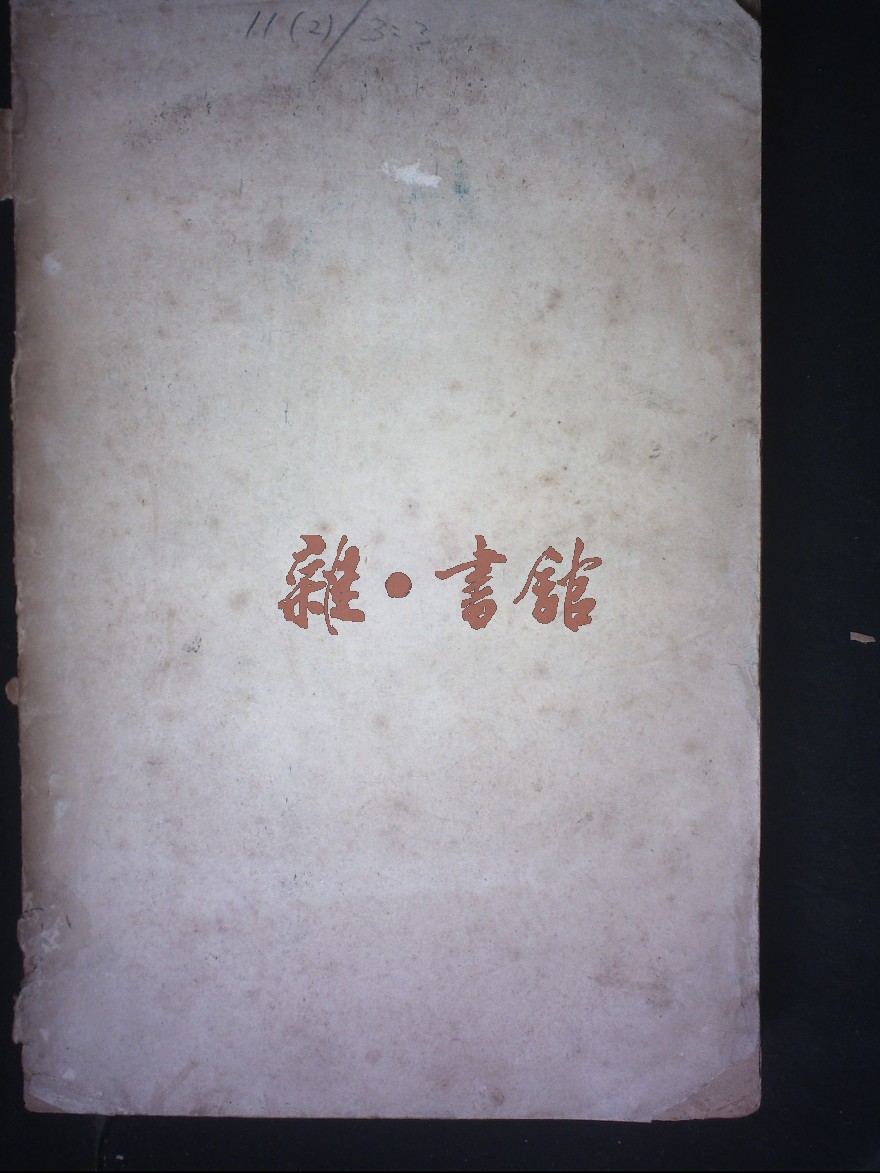 11(2)/3:3
雜·書館